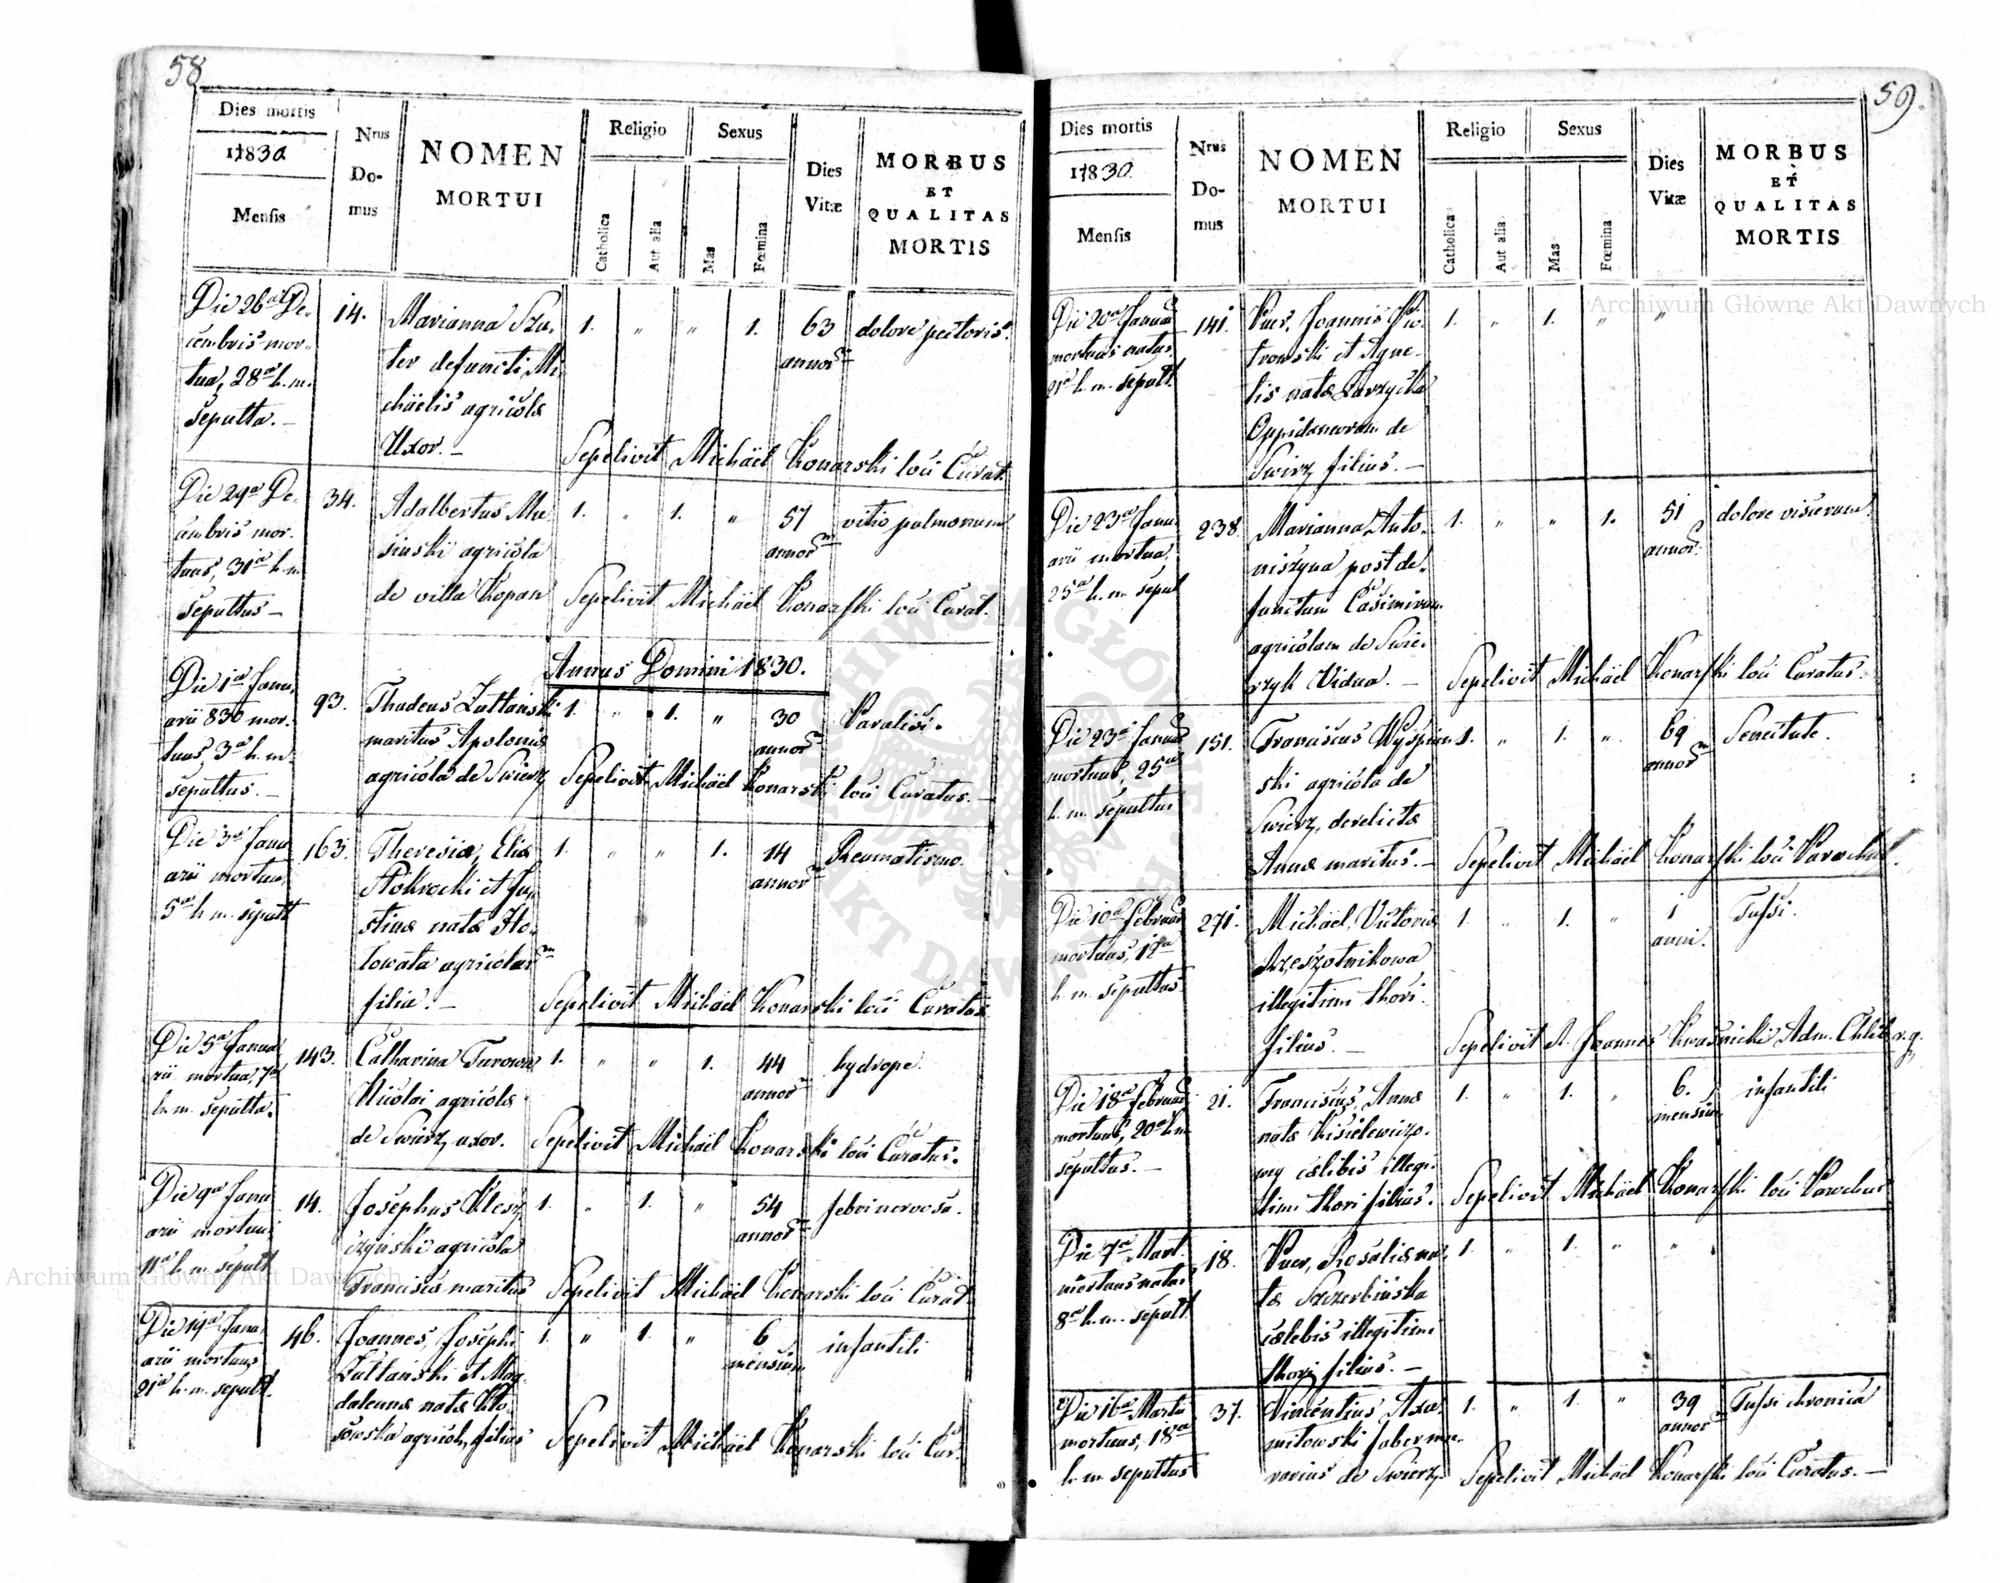 58
Dies mortis
1830
Mensis
Nrus
Do-
mus
NOMEN
MORTUI
Religio
Catholica
Aut alia
Sexus
Mas
Fœmina
Dies
Vitæ
MORBUS
ET
QUALITAS
MORTIS
Die 26a De-
cembris mor-
tua, 28a h. m.
sepulta. –
14.
Marianna
ter defuncti Mi-
chäelis agricolæ
Uxor. –
1. " " 1.
63
annorum
dolore pectoris.
Sepelivit Michäel Konarski loci Curat.
Die 29a De-
cembris mor-
tuus, 31a h. m.
sepultus –
34.
Adalbertus Mu-
sinski agricola
de villa Kopan
1. " 1. "
57
annorum
vitio pulmonum
Sepelivit Michäel Konarski loci Curat.
Annus Domini 1830.
Die 1a Janu-
arii 830 mor-
tuus, 3a h. m.
sepultus. –
93.
Thadeus Zultanski
maritus Apoloniæ
agricola de Swierz
1. " 1. "
30
annorum
Paralisi.
Sepelivit Michäel Konarski loci Curatus. –
Die 3a Janu-
arii mortua,
5a h. m. sepult
163.
Theresia, Eliæ
Mokrocki et Ju-
stinæ natæ Ho-
lowata agricolarum
filia. –
1. " " 1.
14
annorum
Reumatismo.
Sepelivit Michäel Konarski loci Curatus
Die 5a Janua-
rii mortua, 7a
h. m. sepulta.
143.
Catharina Turowa
Nicolai agricolæ
de Swierz, uxor.
1. " " 1.
44
annorum
hydrope.
Sepelivit Michäel Konarski loci Curatus.
Die 9a Janu-
arii mortuus
11a h. m. sepult
14.
Josephus Klesz-
czyński agricola
Franciscæ maritus
1. " 1. "
54
annorum
febri nervosa.
Sepelivit Michäel Konarski loci Curat.
Die 19a Janu-
arii mortuus
21a h. m. sepult.
46.
Joannes, Josephi
Zultanski et Mag-
dalennæ natæ Kło-
sowska agricol. filius
1. " 1. "
6
mensium
infantili
Sepelivit Michäel Konarski loci Cur.
59.
Dies mortis
1830.
Mensis
Nrus
Do-
mus
NOMEN
MORTUI
Religio
Catholica
Aut alia
Sexus
Mas
Fœmina
Dies
Vitæ
MORBUS
ET
QUALITAS
MORTIS
Die 20a Januar
mortuus natus
21a h. m. sepult.
141.
Puer, Joannis Pio-
trowski et Agne-
tis natæ
Oppidaneorum de
Swirz, filius. –
1. " 1. " "
Die 23a Janu-
arii mortua,
25a h. m. sepul
238
Marianna Anto-
niszyna post de-
functum Casimirum
agricolam de Swie-
rzyk Vidua. –
1. " " 1.
51
annor.
dolore viscerum.
Sepelivit Michäel Konarski loci Curatus.
Die 23a Januar
mortuus, 25a
h. m. sepultus
151.
Franciscus Wyspian-
ski agricola de
Swierz, derelictæ
Annæ maritus. –
1. " 1. "
69
annorum
Senectute.
Sepelivit Michäel Konarski loci Parochus.
Die 10a Februar
mortuus, 12a
h. m. sepultus
271.
Michäel, Victoriæ
Rzeszotnikowa
illegitimi thori
filius. –
1. " 1. "
1
anni.
Tussi.
Sepelivit R. Joannes Kwaśnicki Adm. Chleb. r. g.
Die 18a Februar
mortuus, 20a h. m.
sepultus. –
21.
Franciscus, Annæ
natæ Kisielewiczo-
wey cælibis illegi-
timi thori filius.
1. " 1. "
6.
mensium
infantili
Sepelivit Michäel Konarski loci Parochus
Die 7a Mart.
mortuus natus
8a h. m. sepult.
18.
Puer, Rosaliæ na-
tæ Szczerbińska
cælebis illegitimi
thori filius. –
1. " 1. " "
Die 16a Martii
mortuus, 18a
h. m. sepultus
37.
Vincentius Axa-
mitowski faber mu-
rarius de Swierz,
1. " 1. "
39
annor
Tussi chronica
Sepelivit Michäel Konarski loci Curatus. –
Archiwum Główne Akt Dawnych
Archiwum Główne Akt Dawnych
ARCHIWUM GŁÓWNE AKT DAWNYCH